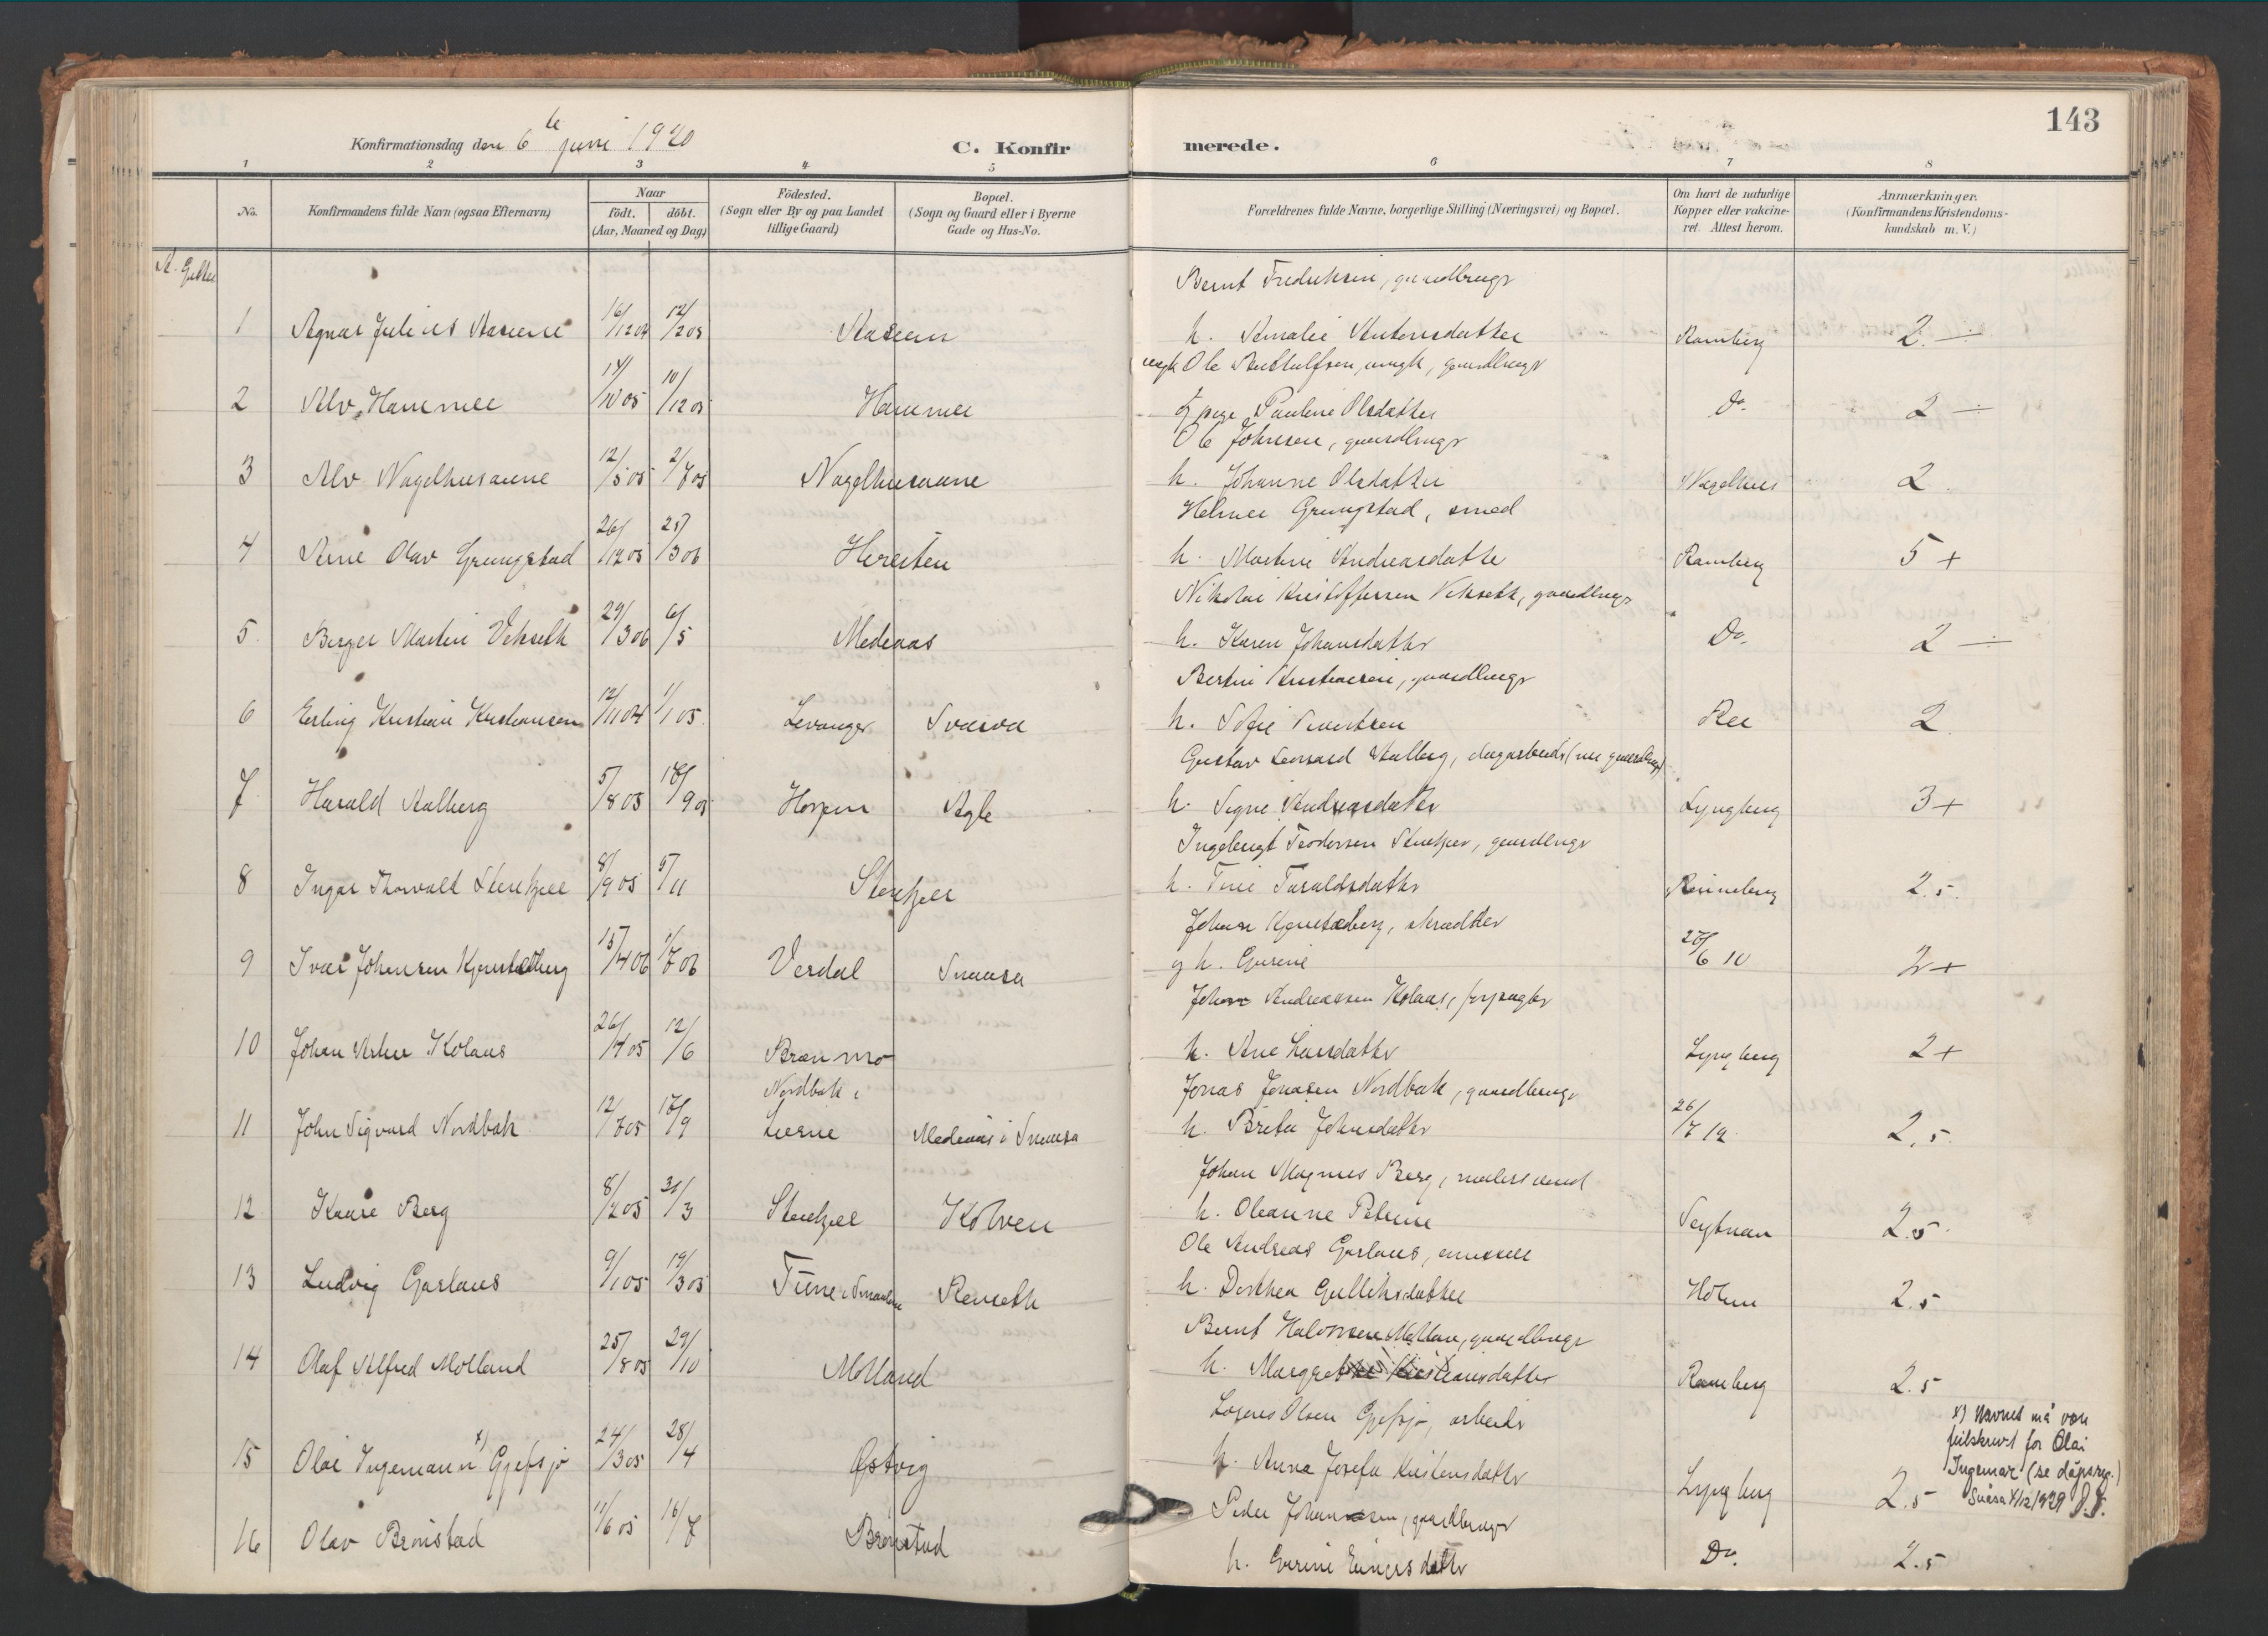 Konfirmationsdag den 6te juni 1920
C. Konfir
merede.
143
1 2 3 4 5 6 7 8
No. Konfirmandens fulde Navn (ogsaa Efternavn) Naar födt. döbt. (Aar, Maaned og Dag) Födested. (Sogn eller By og paa Landet tillige Gaard) Bopæl. (Sogn og Gaard eller i Byerne Gade og Hus-No. Forældrenes fulde Navne, borgerlige Stilling (Næringsvei) og Bopæl. Om havt de naturlige Kopper eller vakcineret. Attest herom. Anmærkninger. (Konfirmandens Kristendomskundskab m. V.)
A. Gutter
Bernt Fredriksen, gaardbrugr
1 Agnar Julius Aasum 16/12 04 12/2 05 Aasum h. Amalie Antonsdatter Ramberg 2 ÷
ungk. Ole Audulfsen, ungk, gaardbrugr
2 Alv Hammer 14/10 05 10/12 05 Hammer og pige Pauline Olsdatter Do. 2 ÷
Ole Johnsen, gaardbrugr
3 Alv Nagelhusaune 12/5 05 2/7 05 Nagelhusaune h. Johanne Olsdatter Nagelhus 2
Helmer Grungstad, smed
4 Arne Olav Grungstad 26/12 05 25/3 06 h. Martine Andreasdatter Ramberg 5 +
Nikolai Kristoffersen Vekseth, gaardbrugr
5 Berger Martin Vekseth 29/3 06 6/5 Medeaas h. Karen Johansdatter Do. 2 ÷
Bertin Kristiansen, gaardbrugr
6 Erling Kristian Kristiansen 12/11 04 1/1 05 Levanger h. Sofie Sivertsen Ree 2
Gustav Leonard Aalberg, dagarbeidr (nu gaardbrugr)
7 Harald Aalberg 5/8 05 17/9 05 Agle h. Signe Andreasdatter Lyngberg 3 +
Ingebrigt Teodorsen Stenkjer, gaardbrugr
8 Ingar Thorvald Stenkjer 8/9 05 5/11 Stenkjer h. Tine Taraldsdatter Rinneberg 2.5
Johan Kjenstadberg, skrædder
9 Ivar Johansen Kjenstadberg 15/4 06 1/7 06 Verdal Snaasa og h. Gurine 27/6 10 2 +
Johan Andreassen Kolaas, forpagter
10 Johan Arthur Kolaas 26/4 05 12/6 Brønmo h. Ane Larsdatter Lyngberg 2 +
Nordbak i Jonas Jonasen Nordbak, gaardbrugr
11 John Sigvard Nordbak 12/7 05 17/9 Lierne Medeaas i Snaasa h. Breta Johnsdatter 26/7 19 2.5
Johan Magnus Berg, malersvend
12 Kaare Berg 8/2 05 31/3 Stenkjer Kolven h. Oleanne Petrine 2.5
Ole Andreas Garlaus
13 Ludvig Garlaus 9/1 05 19/3 05 h. Dorthea Gulliksdatter Holm 2.5
Bernt Halvorsen Molland, gaardbrugr
14 Olaf Alfred Molland 25/8 05 29/10 Molland h. Margrethe Kristiansdatter Ramberg 2.5
Olsen Gjefsjø, arbeidr
15 Olai Ingemann x) Gjefsjø 24/3 05 28/4 Østvig h. Anna Josefa Kristensdatter Lyngberg 2.5
x) Navnet må være
feilskrevet for Olai
Ingemar (se dåpsreg.)
Snåsa 4/12 1929 J.F.
Peder Johansen, gaardbruger
16 Olav Brønstad 11/6 05 16/7 Brønstad h. Gurine Einersdatter Do. 2.5